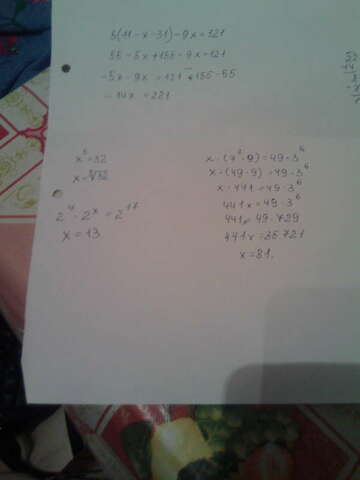 5(11-x-31)-9x=121
55-5x+155-9x=121
-5x-9x=121-155-55
-14x=221
x⁵=32
x=⁵√32
2⁴·2ˣ=2¹⁷
x=13
x·(7²·9)=49·3⁶
x·(49·9)=49·3⁶
x·441=49·3⁶
441x=49·3⁶
441x=49·729
441x=35721
x=81.